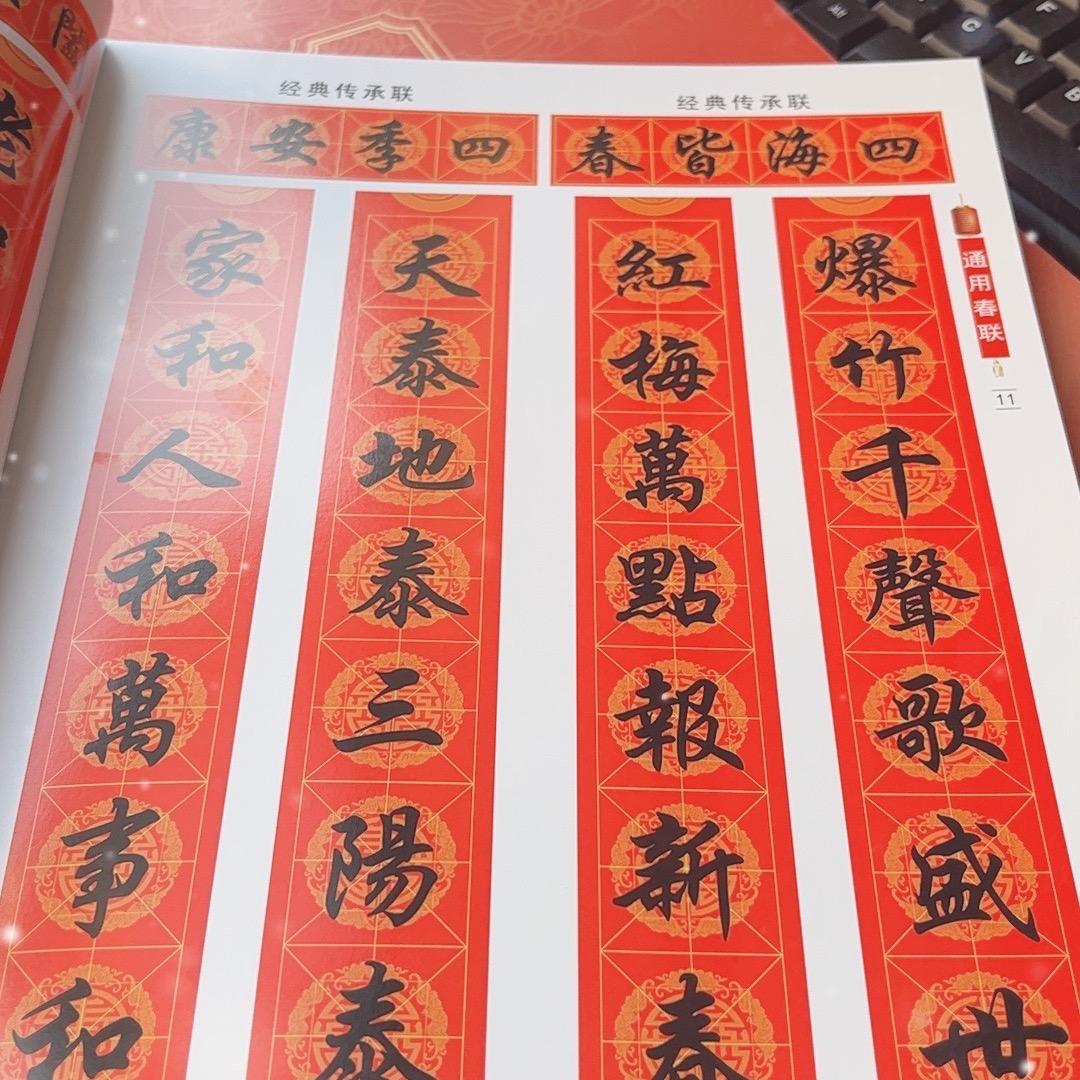 经典传承联
四海皆春
爆竹千聲歌盛世
紅梅萬點報新春
经典传承联
四季安康
天泰地泰三陽泰
家和人和萬事和
通用春联
11